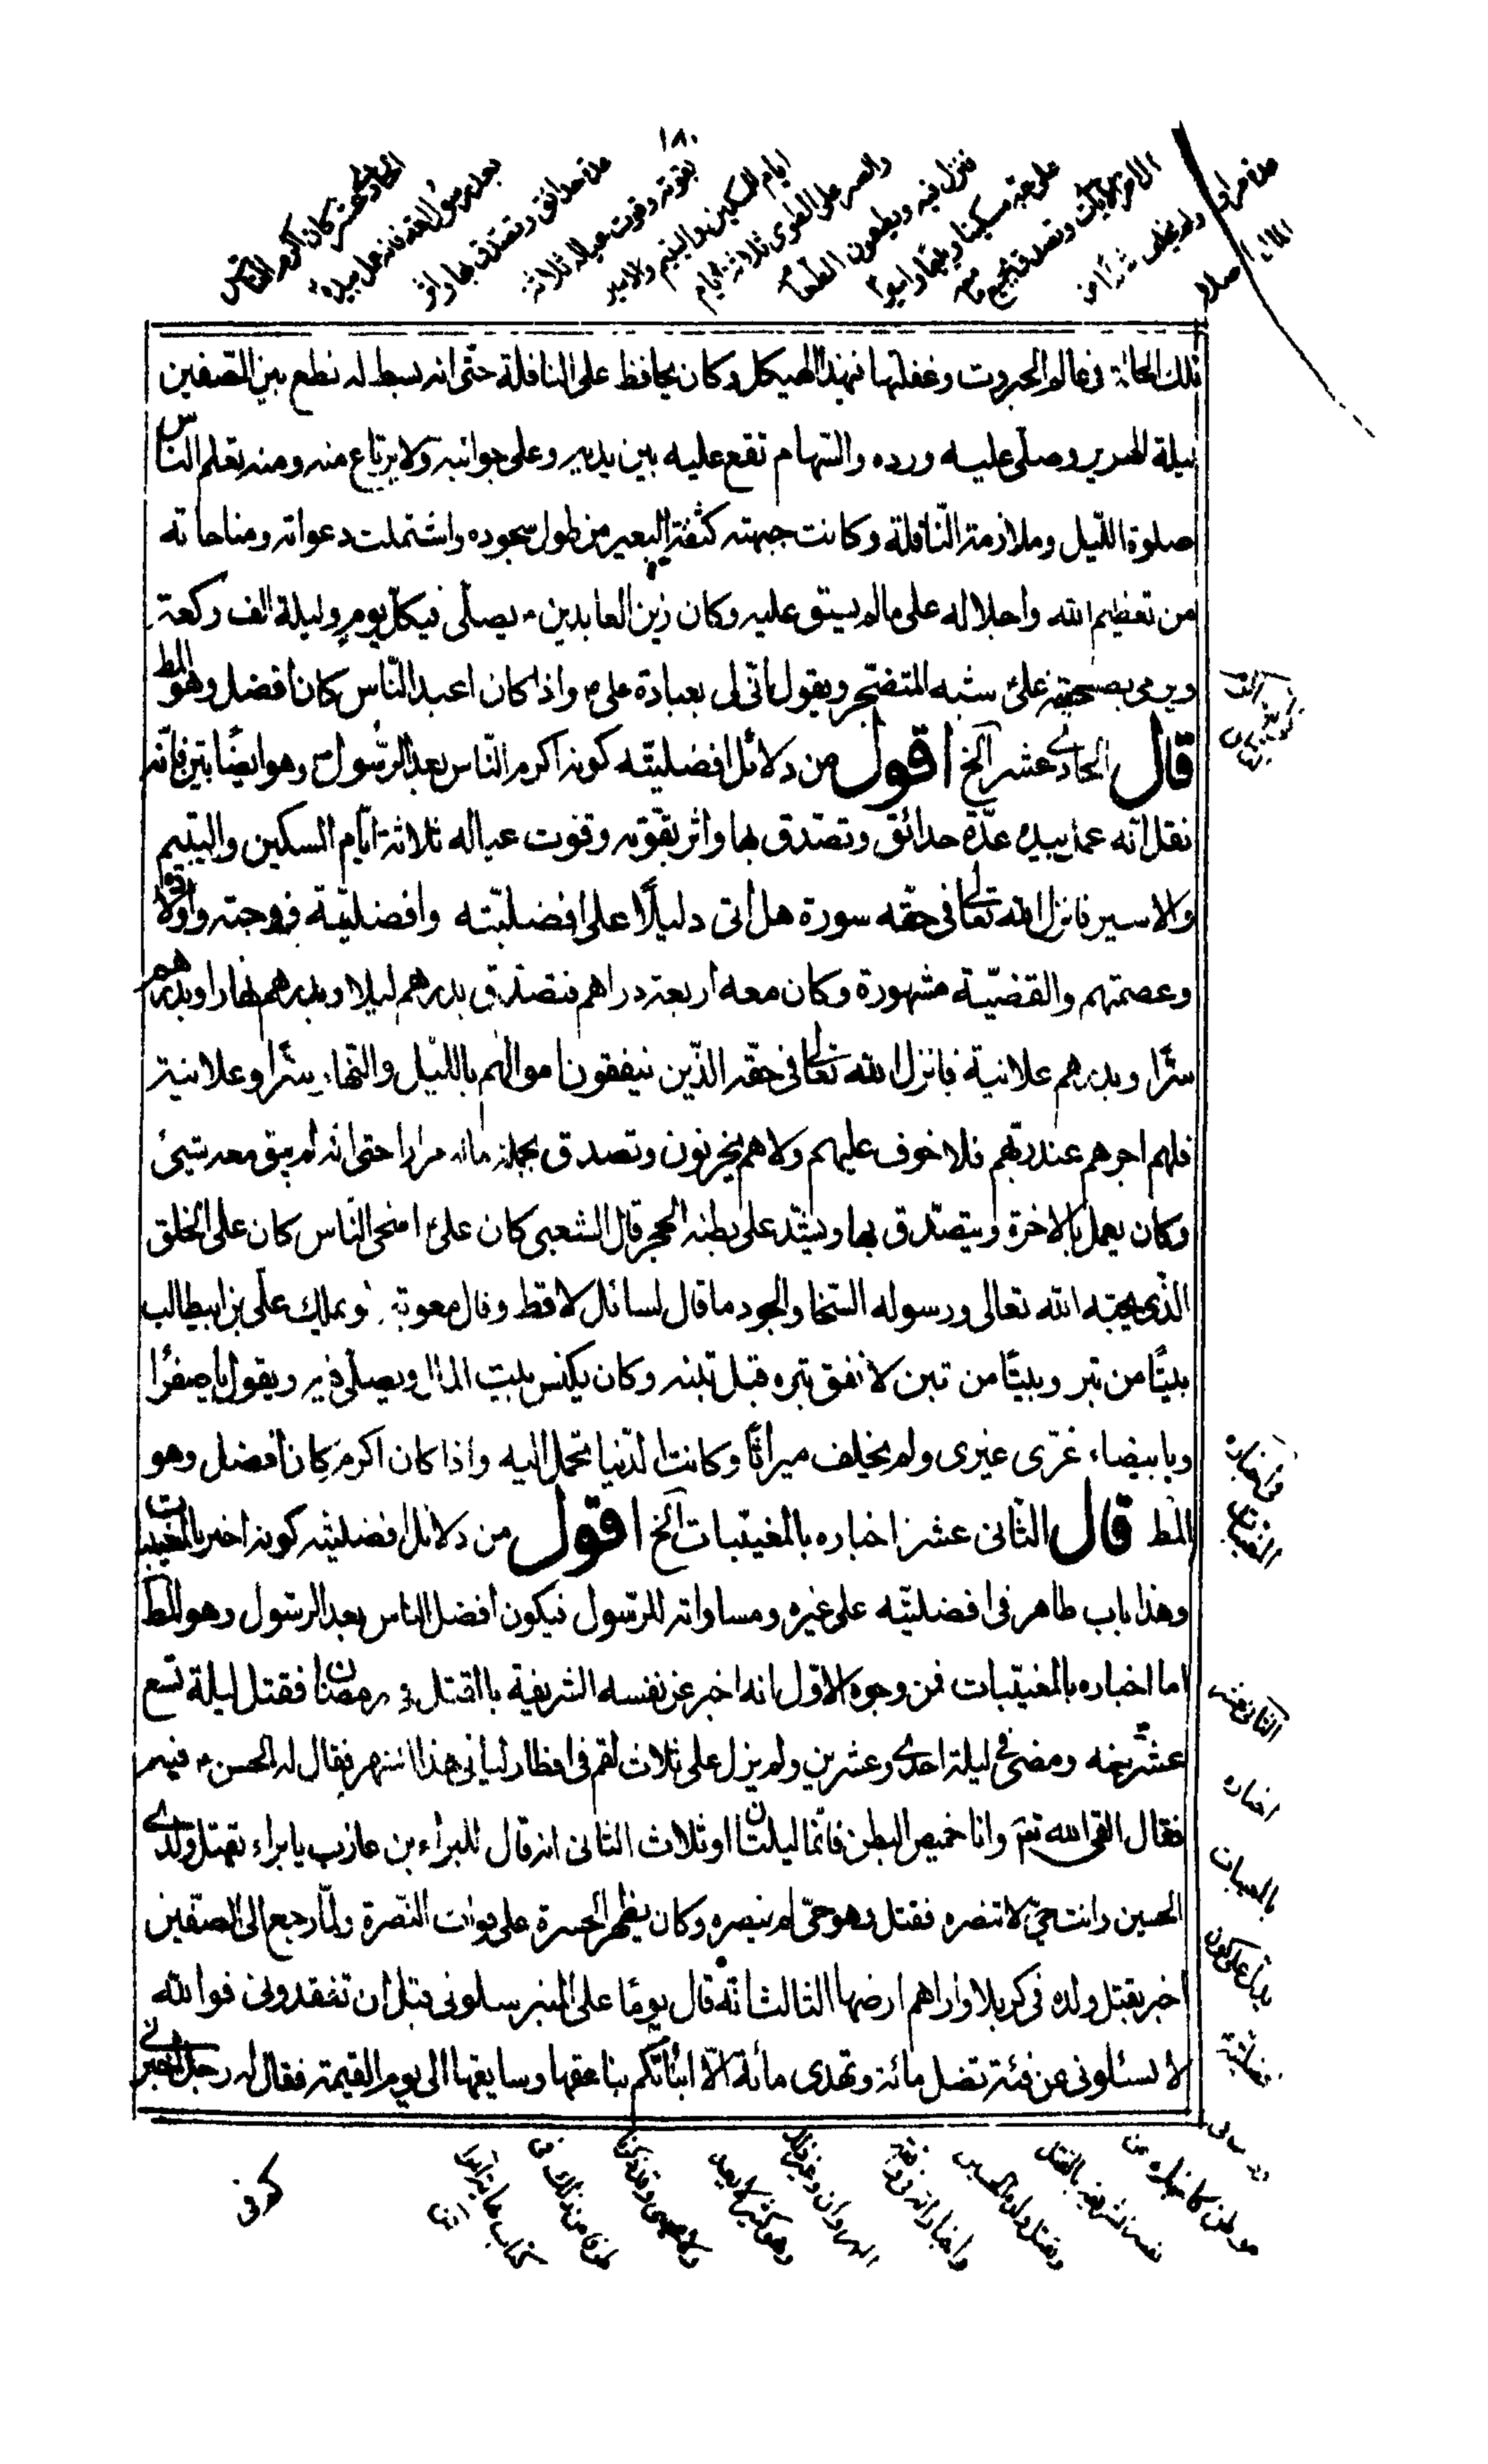 ١٨٠
الحادي عشر كان اكرم الناس
بعد رسول الله فانه عمل بيده
من حدائق وتصدق بها واثر
بقوته وقوت عياله ثلاثة
ايام للمسكين واليتيم والاسير
والصبر على الطوى ثلاثة ايام
فنزل فيه ويطعمون الطعام
على حبه مسكينا ويتيما واسيرا
وتصدق بجميع ماله
مرارا ولم يخلف شيئا من
المال اصلا
تلك الحالة فى عالم الجبروت وغفلتها بهذا الهيكل وكان يحافظ على النافلة حتّى انه بسط له نطع بين الصّفين
ليلة الهرير وصلّى عليه ورده والسّهام تقع عليه بين يديه وعلى جوانبه ولا يرتاع منه ومنه تعلم النّاس
صلوة اللّيل وملازمة النّافلة وكانت جبهته كثفنة البعير من طول سجوده واشتملت دعواته ومناجاته
من تعظيم الله واجلاله على مالم يسبق عليه وكان زين العابدين ع يصلّى فيكلّ يوم وليلة الف ركعة
ويرمى بصحيفة علىّ شبه المتضجّر ويقول انّى لى بعبادة على ع واذا كان اعبد النّاس كان افضل وهو المط
قال الحادي عشر الخ اقول من دلائل افضليّته كونه اكرم النّاس بعد الرّسول ص وهو ايضًا بيّن فانّه
نقل انّه عمل بيده عدّة حدائق وتصّدق بها واثر بقوّته وقوت عياله ثلاثة ايّام المسكين واليتيم
والاسير فانزل الله تعالى فى حقّه سورة هل اتى دليلًا على افضليّته وافضليّة زوجته واولاده
وعصمتهم والقضيّة مشهورة وكان معه اربعة دراهم فتصدّق بدرهم ليلا وبدرهم نهارا وبدرهم
سرًّا وبدرهم علانية فانزل الله تعالى فى حقّه الذّين ينفقون اموالهم باللّيل والنّهار سرًّا وعلانية
فلهم اجرهم عند ربّهم فلا خوف عليهم ولا هم يحزنون وتصدق بجملة ماله مرارا حتى انه لم يبق معه شيئ
وكان يعمل بالاجرة ويتصّدق بها ويشدّ على بطنه الحجر قال الشعبى كان علىّ اسخى النّاس كان على الخلق
الذّى يحبّه الله تعالى ورسوله السّخا والجود ما قال لسائل لا قط وقال معوية لو يملك علّى بن ابيطالب
بيتًا من تبر وبيتًا من تبن لانفق تبره قبل تبنه وكان يكنس بيت المال ويصلّى فيه ويقول يا صفرا
ويا بيضاء غرّى غيرى ولم يخلف ميراثًا وكانت الدّنيا تحمل اليه واذا كان اكرم كان افضل وهو
المط قال الثّانى عشر اخباره بالمغيّبات الخ اقول من دلائل افضليّته كونه اخبر بالمغيبات
وهذا باب ظاهر فى افضليّته على غيره ومساواته للرّسول فيكون افضل الناس بعد الرّسول وهو المط
اما اخباره بالمغيّبات فمن وجوه الاوّل انه اخبر عن نفسه الشّريفة بالقتل فى رمضان فقتل ليلة تسع
عشر منه ومضى فى ليلة احدى وعشرين ولم يزل على ثلاث لقم فى افطار ليالى هذا الشهر فقال له الحسن ع فيهم
فقال القى الله تعالى وانا خميص البطن فانّما ليلتان او ثلاث الثانى انه قال للبراء بن عازب يا براء تقتل ولدي
الحسين وانت حىّ لا تنصره فقتل وهو حىّ لم ينصره وكان يظهر الحسرة على فوات النّصرة ولمّا رجع الى الصّفين
اخبر بقتل ولده فى كربلا واراهم ارضها الثالث انّه قال يومًا على المنبر سلونى قبل ان تفقدونى فوالله
لا تسئلونى عن فئة تضل مائة وتهدى مائة الّا انباتكم بناعقها وسايقها الى يوم القيمة فقال له رجل اخبرنى
الثانى عشر
اخباره
بالمغيبات
نفسه الشريفة بالقتل
وقتل ولده الحسين
كونى